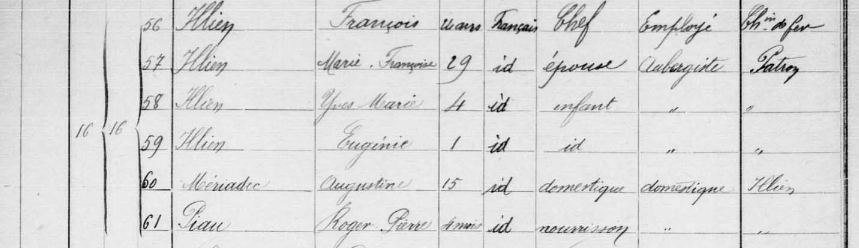 56 Illien François 26 ans Français Chef Employé Ch.in de fer
57 Illien Marie-Françoise 29 id épouse Aubergiste Patron
58 Illien Yves Marie 4 id enfant " "
16 16 59 Illien Eugénie 1 id id " "
60 Mériadec Augustine 15 id domestique domestique Illien
61 Piau Roger Pierre 4 mois id nourrisson " "